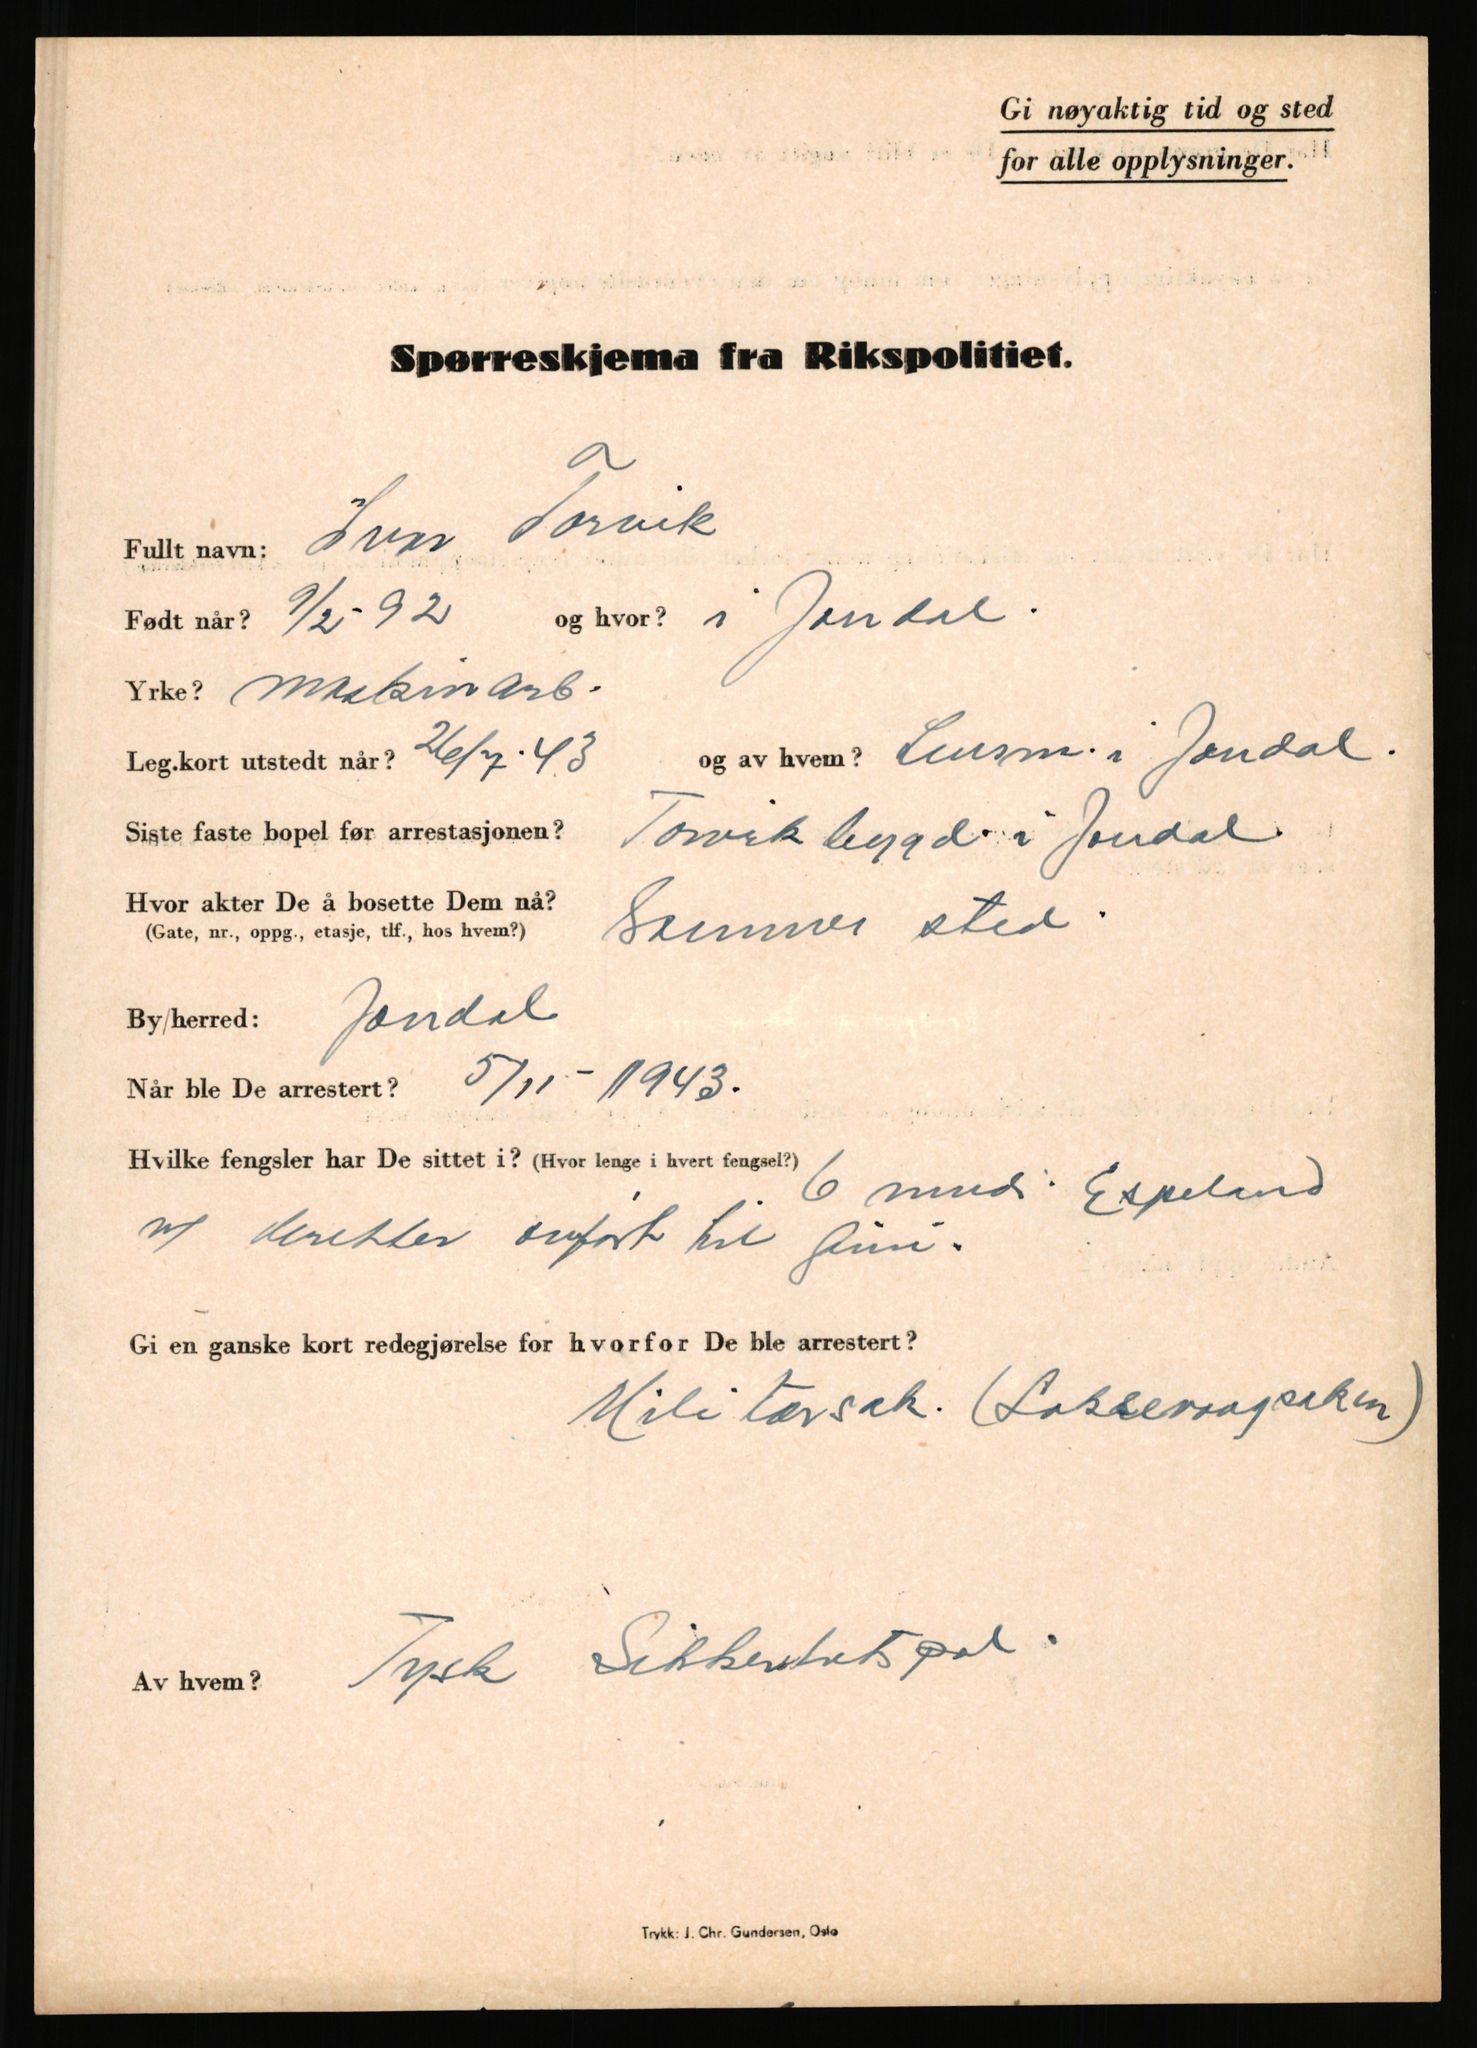 Gi nøyaktig tid og sted
for alle opplysninger.
Spørreskjema fra Rikspolitiet.
Fullt navn: Ivar Torvik
Født når? 9/2-92 og hvor? i Jondal.
Yrke? maskinarb.
Leg.kort utstedt når? 26/7.43 og av hvem? Lensm. i Jondal.
Siste faste bopel før arrestasjonen? Torvikbygd. i Jondal.
Hvor akter De å bosette Dem nå? Sammer sted.
(Gate, nr., oppg., etasje, tlf., hos hvem?)
By/herred: Jondal
Når ble De arrestert? 5/11-1943.
Hvilke fengsler har De sittet i? (Hvor lenge i hvert fengsel?) 6 mnd. Espeland
deretter ovført til Grini.
Gi en ganske kort redegjørelse for hvorfor De ble arrestert?
Militærsak. (Laksevaagsaken)
Av hvem? Tysk Sikkerhetspol.
Trykk: J. Chr. Gundersen, Oslo